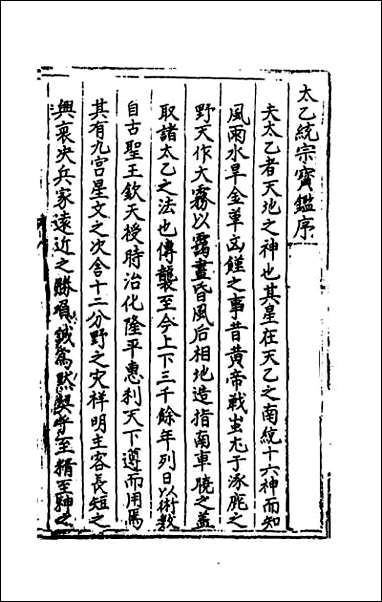 太乙統宗寶鑑序
夫太乙者天地之神也其星在天乙之南統十六神而知
風雨水旱金革凶饉之事昔黃帝戰蚩尤于涿鹿之
野天作大霧以靄晝昏風后相地造指南車曉之蓋
取諸太乙之法也傳襲至今上下三千餘年列日以術教
自古聖王欽天授時治化隆平惠利天下遵而用焉
其有九宮星文之次舍十二分野之災祥明主客長短之
興衰決兵家遠近之勝負 默契乎至精至神之